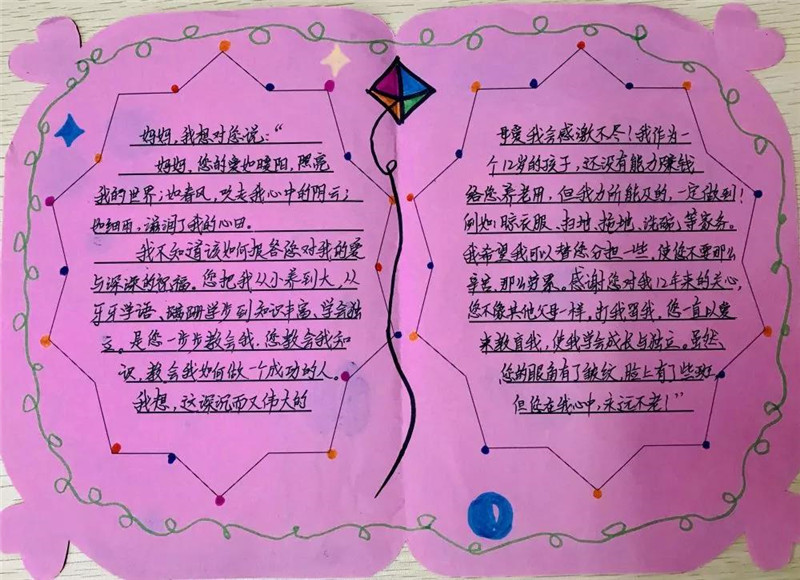 妈妈,我想对您说:“
妈妈,您的爱如暖阳,照亮
我的世界;如春风,吹去我心中的阴云;
如细雨,滋润了我的心田。
我不知道该如何报答您对我的爱
与深深的祝福。您把我从小养到大,从
牙牙学语、蹒跚学步到知识丰富、学会独
立。是您一步步教会我,您教会我知
识,教会我如何做一个成功的人。
我想,这深沉而又伟大的
母爱我会感激不尽!我作为一
个12岁的孩子,还没有能力赚钱
给您养老用,但我力所能及的,一定做到!
例如:晾衣服、扫地、拖地、洗碗,等家务。
我希望我可以替您分担一些,使您不要那么
辛苦,那么劳累。感谢您对我12年来的关心,
您不像其他父母一样,打我骂我,您一直以爱
来教育我,使我学会成长与独立。虽然,
您的眼角有了皱纹,脸上有了些斑,
但您在我心中,永远不老!”